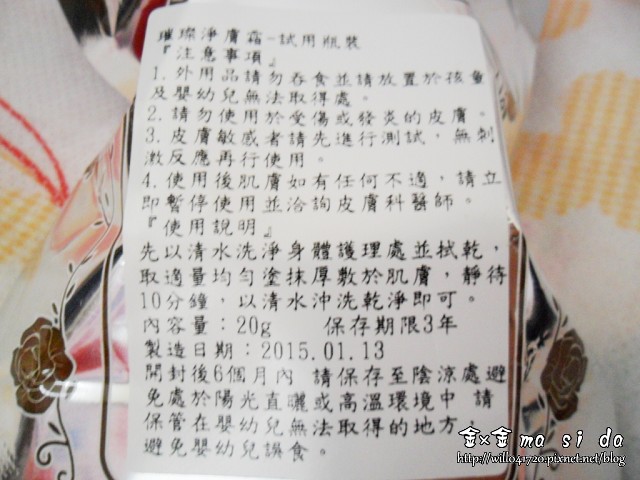 璀璨淨膚霜-試用瓶裝
『注意事項』
1.外用品請勿吞食並請放置於孩童
及嬰幼兒無法取得處。
2.請勿使用於受傷或發炎的皮膚。
3.皮膚敏感者請先進行測試，無刺
激反應再行使用。
4.使用後肌膚如有任何不適，請立
即暫停使用並洽詢皮膚科醫師。
『使用說明』
先以清水洗淨身體護理處並拭乾，
取適量均勻塗抹厚敷於肌膚，靜待
10分鐘，以清水沖洗乾淨即可。
內容量：20g 保存期限3年
製造日期：2015.01.13
開封後6個月內 請保存至陰涼處避
免處於陽光直曬或高溫環境中 請
保管在嬰幼兒無法取得的地方
避免嬰幼兒誤食。
金×金 ma si da
http://willo41720.pixnet.net/blog